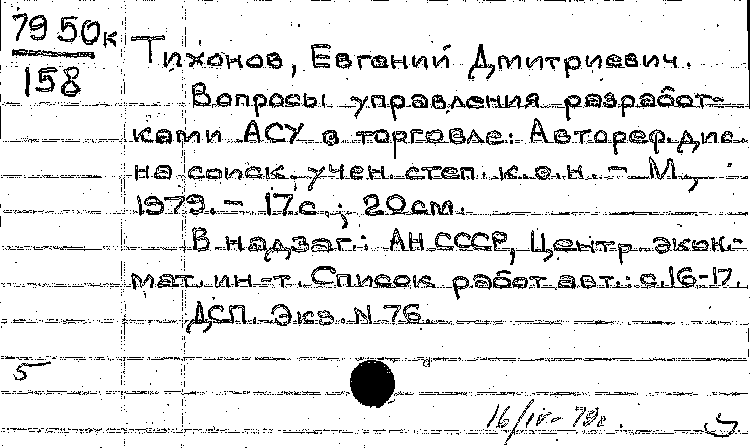 79 50к
158
Тихонов, Евгений Дмитриевич.
Вопросы управления разработ-
ками АСУ в торговле: Автореф. дис.
на соиск. учен. степ. к.э.н. - М.,
1979. - 17 с.; 20 см.
В надзаг.: АН СССР, Центр. экон.-
мат. ин-т. Список работ авт.: с.16-17.
ДСП. Экз. N 76.
5
16/IV- 79г.